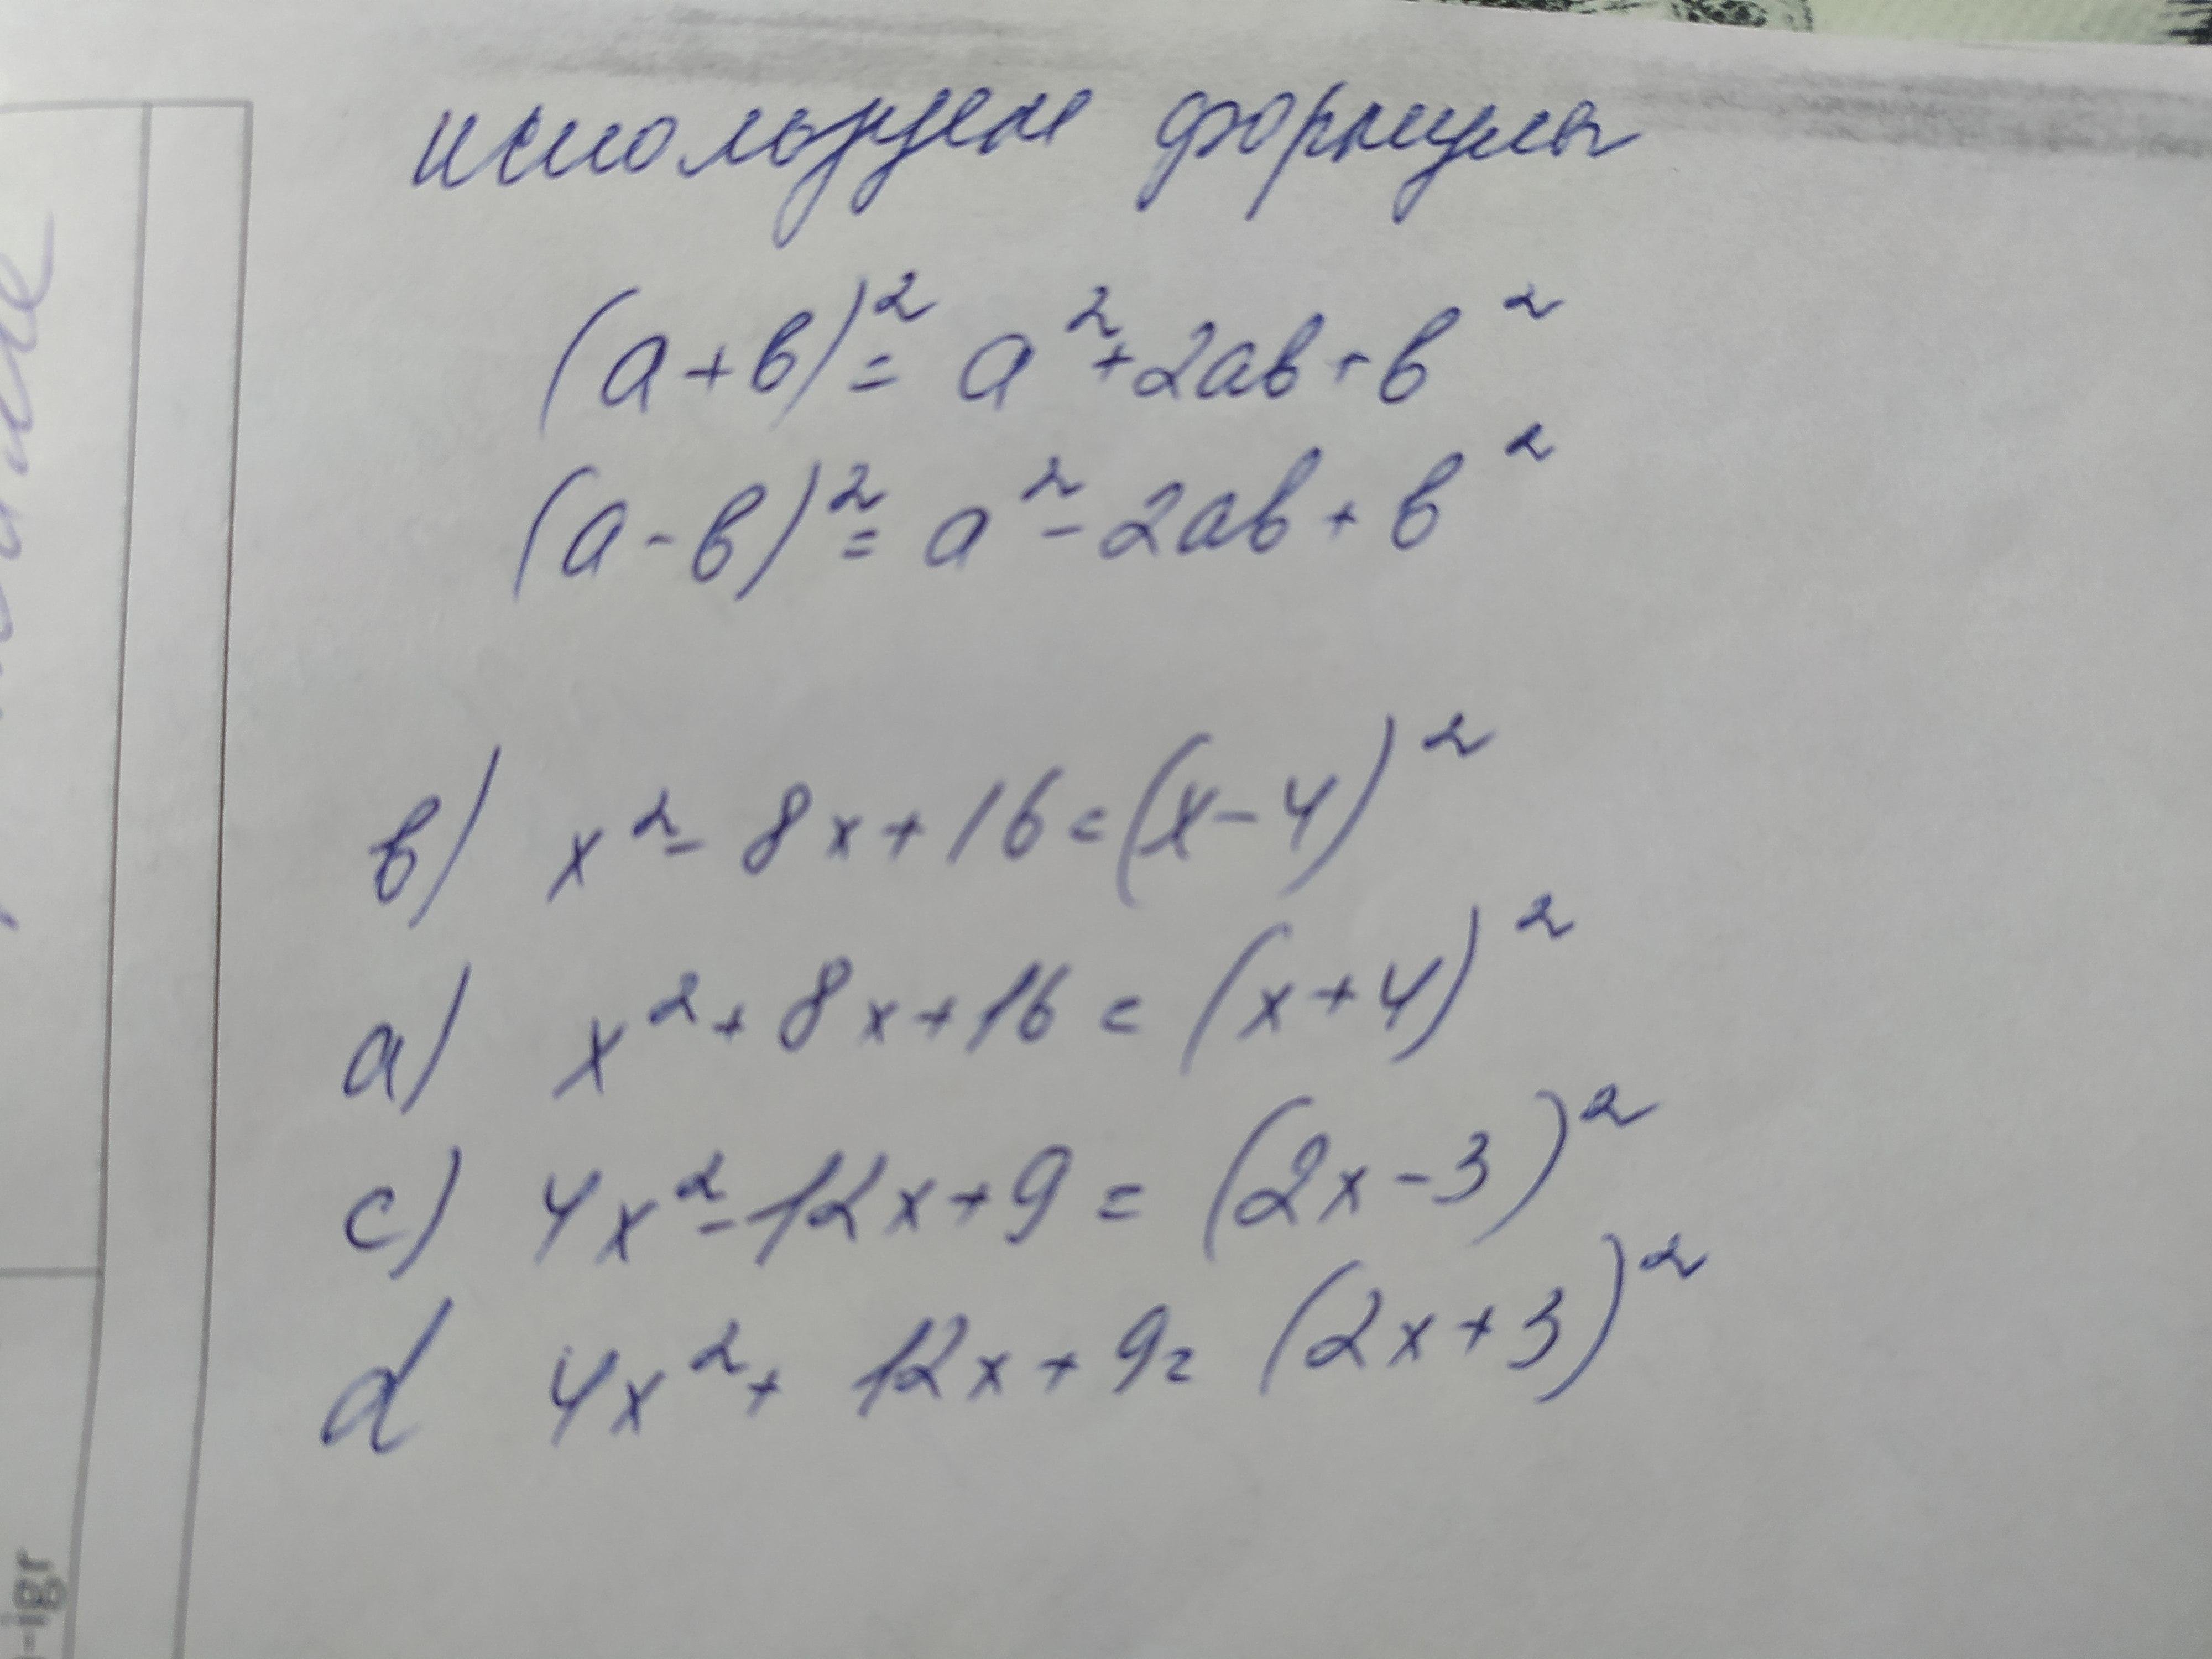 используем формулы
(a+b)² = a²+2ab+b²
(a-b)² = a²-2ab+b²
b) x²-8x+16=(x-4)²
a) x²+8x+16=(x+4)²
c) 4x²-12x+9=(2x-3)²
d 4x²+12x+9=(2x+3)²
-igr